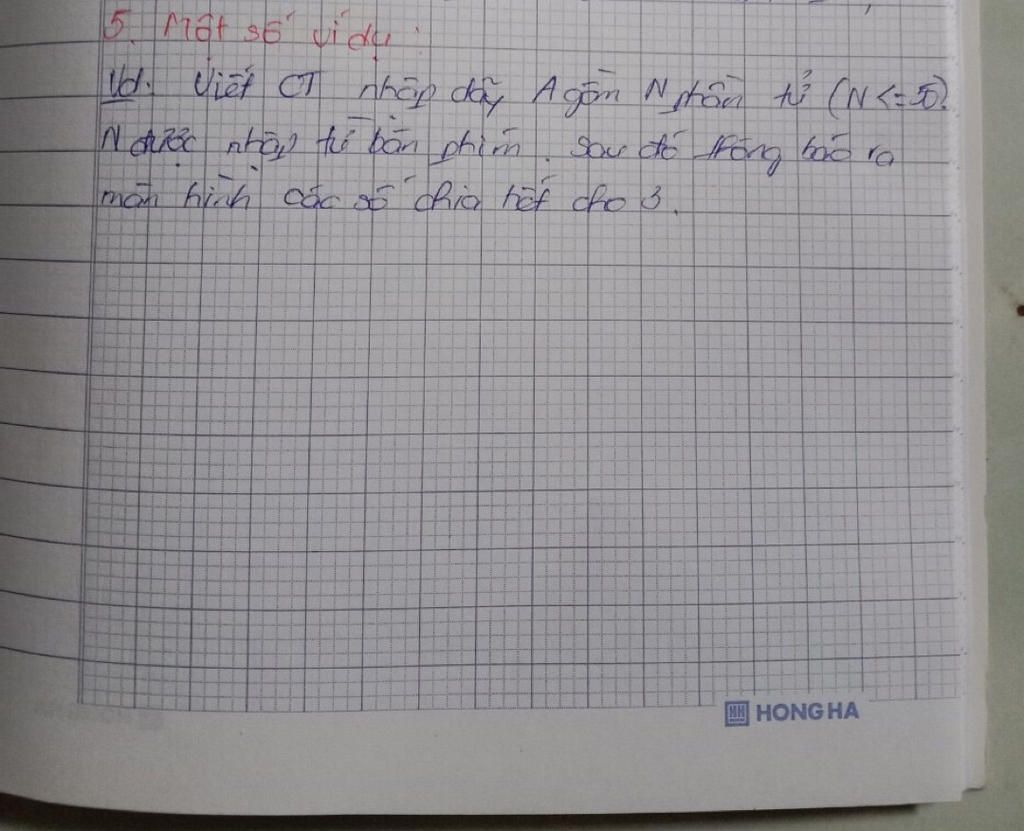 5. Một số ví dụ:
Vd. Viết CT nhập dãy A gồm N phần tử (N <= 50).
N được nhập từ bàn phím. Sau đó thông báo ra
màn hình các số chia hết cho 3.
HONG HA